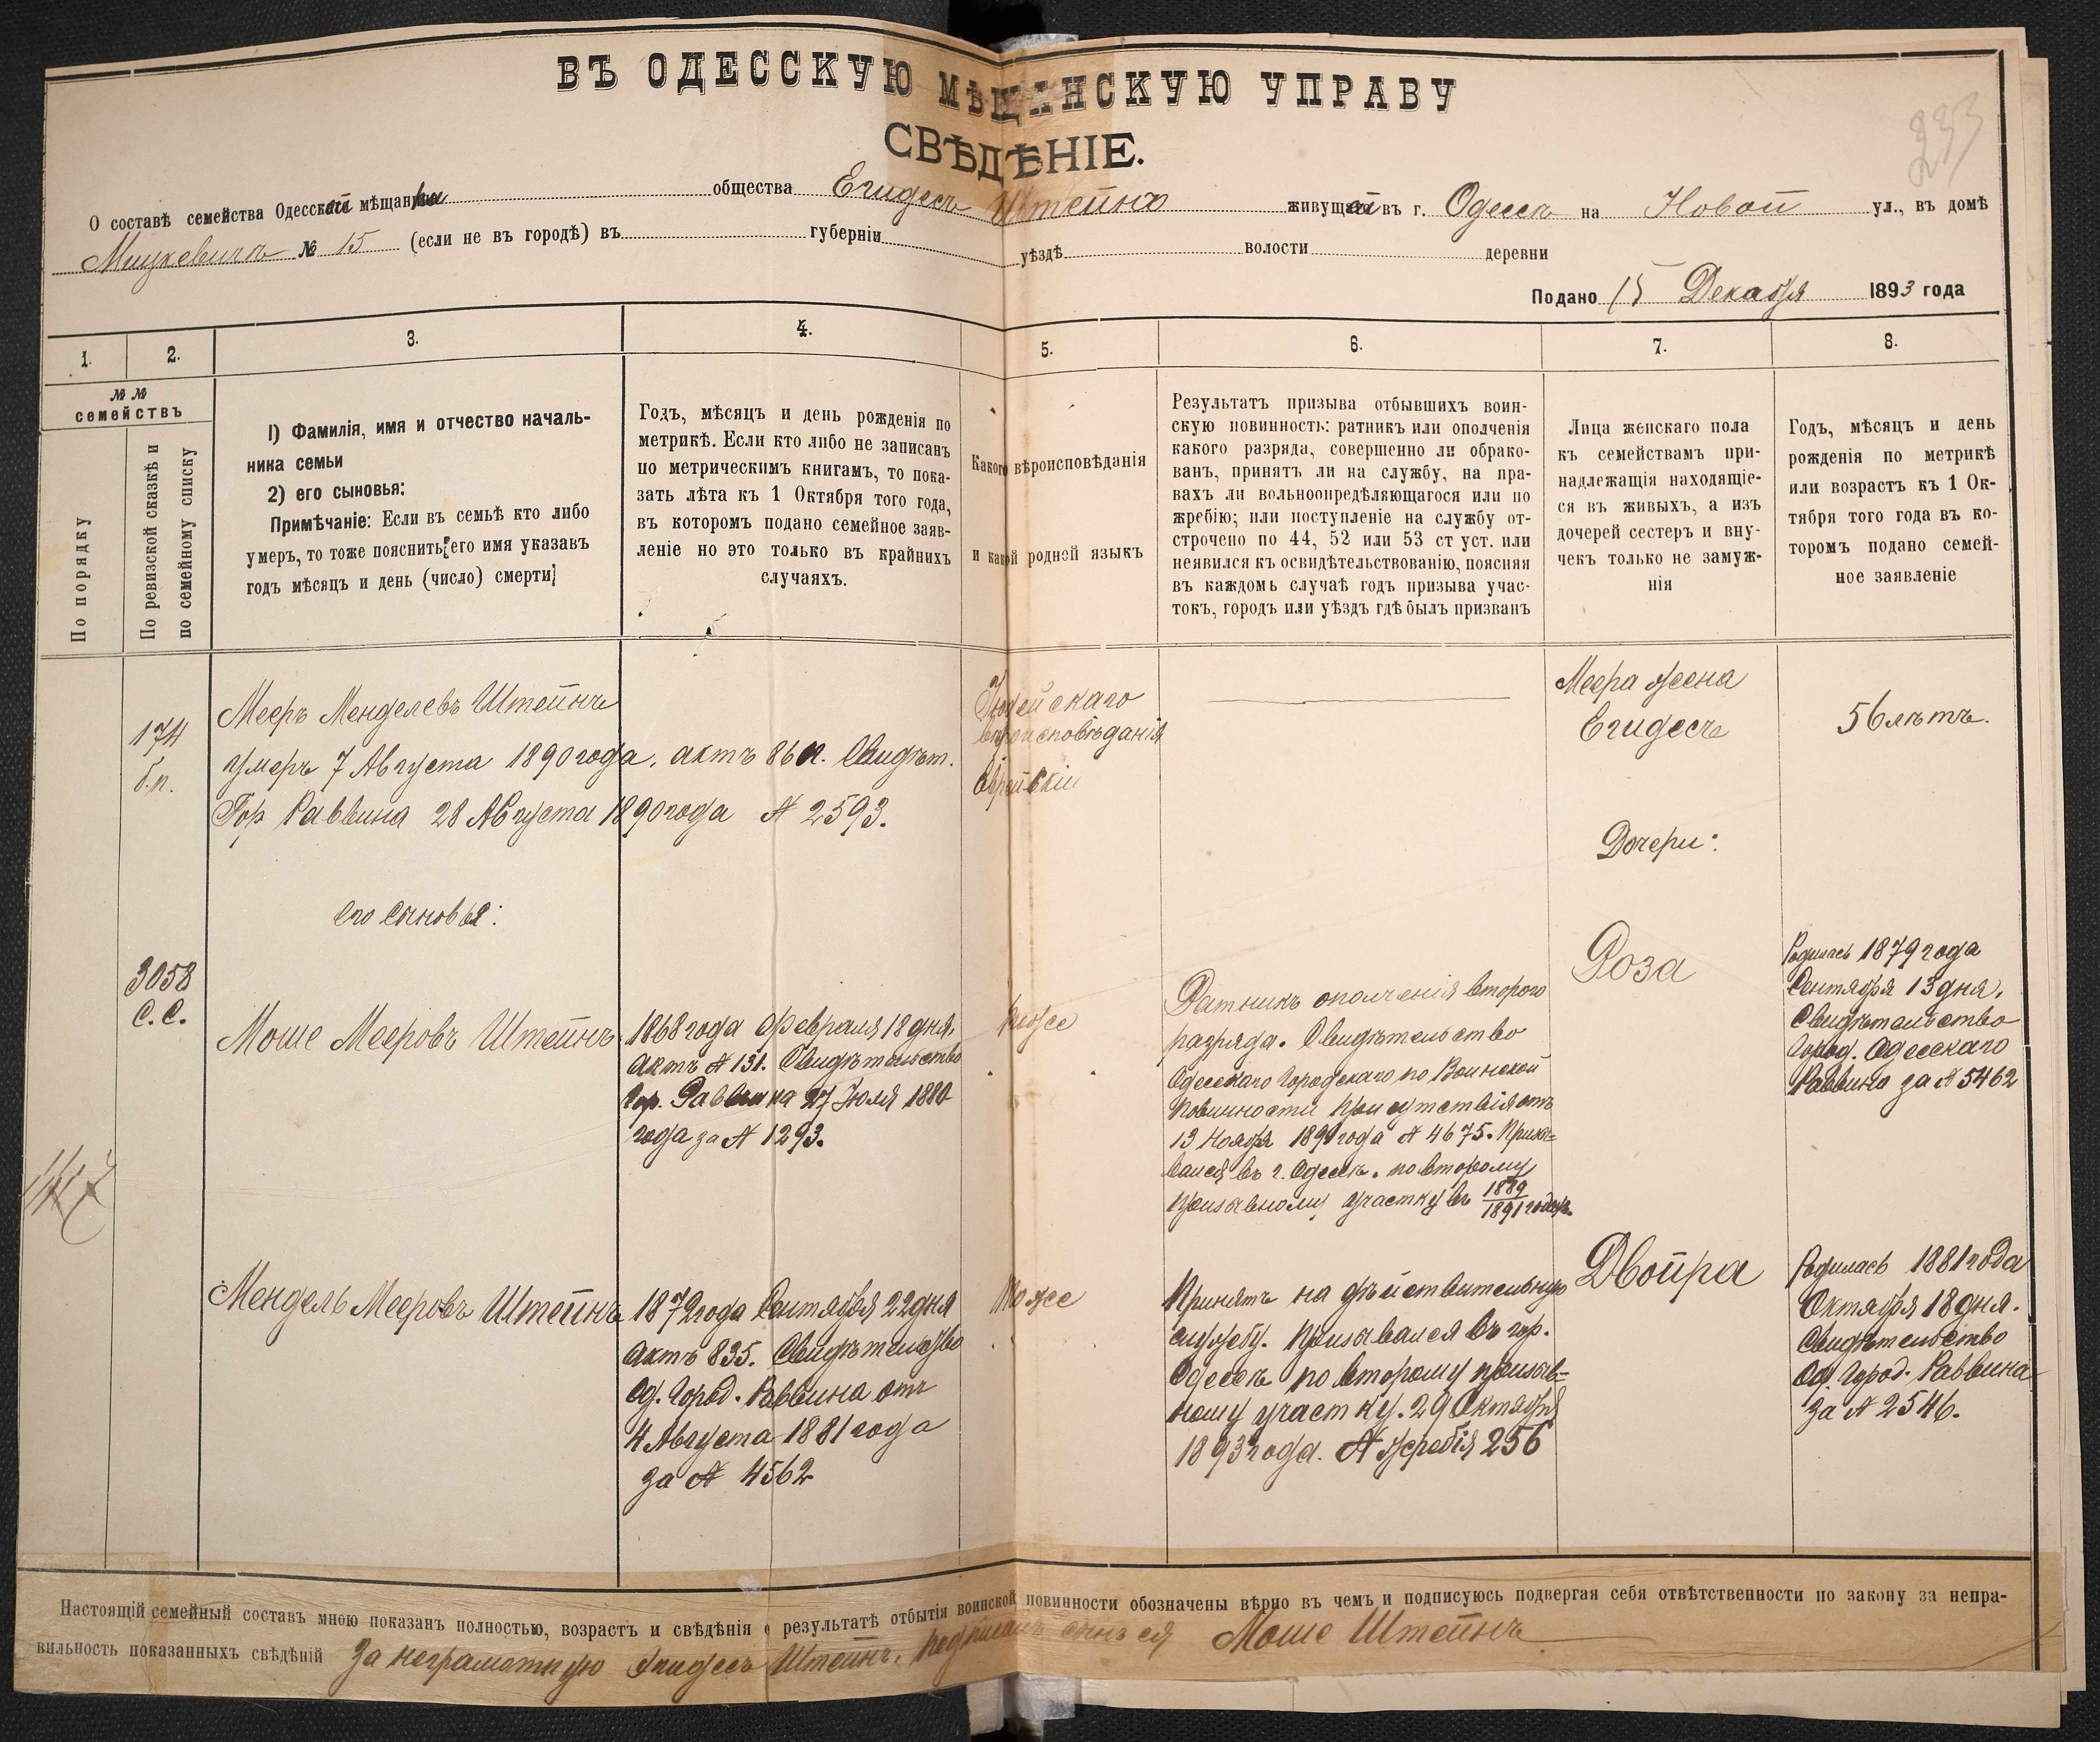 233
ВЪ ОДЕССКУЮ МѢЩАНСКУЮ УПРАВУ
СВѢДѢНІЕ.
О составѣ семейства Одесской мѣщанки общества Егидесъ Штейнъ живущей въ г. Одессѣ на Новой ул., въ домѣ
Мицкевичъ № 15 (если не въ городѣ) въ губерніи уѣздѣ волости деревни
Подано 15 Декабря 1893 года
1. 2. 3. 4. 5. 6. 7. 8.
№ №
семействъ
По порядку
По ревизской сказкѣ и
по семейному списку
1) Фамилія, имя и отчество началь-
ника семьи
2) его сыновья:
Примѣчаніе: Если въ семьѣ кто либо
умеръ, то тоже пояснить его имя указавъ
годъ мѣсяцъ и день (число) смерти
Годъ, мѣсяцъ и день рожденія по
метрикѣ. Если кто либо не записанъ
по метрическимъ книгамъ, то пока-
зать лѣта къ 1 Октября того года,
въ которомъ подано семейное заяв-
леніе но это только въ крайнихъ
случаяхъ.
Какого вѣроисповѣданія
и какой родной языкъ
Результатъ призыва отбывшихъ воин-
скую повинность: ратникъ или ополченія
какого разряда, совершенно ли обрако-
ванъ, принятъ ли на службу, на пра-
вахъ ли вольноопредѣляющагося или по
жребію; или поступленіе на службу от-
строчено по 44, 52 или 53 ст уст. или
неявился къ освидѣтельствованію, поясняя
въ каждомъ случаѣ годъ призыва учас-
токъ, городъ или уѣздъ гдѣ былъ призванъ
Лица женскаго пола
къ семействамъ при-
надлежащія находящіе-
ся въ живыхъ, а изъ
дочерей сестеръ и вну-
чекъ только не замуж-
нія
Годъ, мѣсяцъ и день
рожденія по метрикѣ
или возрастъ къ 1 Ок-
тября того года въ ко-
торомъ подано семей-
ное заявленіе
174
б.п.
Мееръ Менделевъ Штейнъ
умеръ 7 Августа 1890 года, актъ 86 Свидѣт.
Гор Раввина 28 Августа 1890 года № 2593.
Іудейскаго
вѣроисповѣданія
Еврейскій
Меера жена
Егидесъ
56 лѣтъ.
Дочери:
Его сыновья:
3058
С. С.
Моше Мееровъ Штейнъ
1868 года Февраля 18 дня.
Актъ № 131. Свидѣтельство
Гор. Раввина 27 Іюля 1880
года за № 1293.
тоже
Ратникъ ополченія второго
разряда. Свидѣтельство
Одесскаго Городскаго по Воинской
повинности Присутствія отъ
13 Ноября 1891 года № 4675. Призы-
вался въ г. Одессѣ. по второму
призывному участку въ 1889/1891 годахъ.
Роза
Родилась 1879 года
Сентября 13 дня.
Свидѣтельство
Город. Одесскаго
Раввина за № 5462
Мендель Мееровъ Штейнъ
1872 года Сентября 22 дня
Актъ 835. Свидѣтельство
Од. Город. Раввина отъ
4 Августа 1881 года
за № 4562
тоже
Принятъ на дѣйствительную
службу. Призывался въ гор.
Одессѣ по второму призыв-
ному участку. 29 Октября
1893 года. № жребія 256
Двойра
Родилась 1881 года
Октября 18 дня.
Свидѣтельство
Од. Город. Раввина
за № 2546.
Настоящій семейный составъ мною показанъ полностью, возрастъ и свѣдѣнія о результатѣ отбытія воинской повинности обозначены вѣрно въ чемъ и подписуюсь подвергая себя отвѣтственности по закону за непра-
вильность показанныхъ свѣдѣній За неграмотную Егидесъ Штейнъ, подписалъ сынъ ея Моше Штейнъ